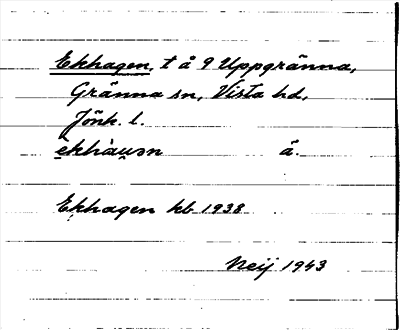 Ekhagen, t å 9 Uppgränna,
Gränna sn, Vista hd,
Jönk. l.
ekhàu̯ən å.
Ekhagen kb 1938
Neij 1943